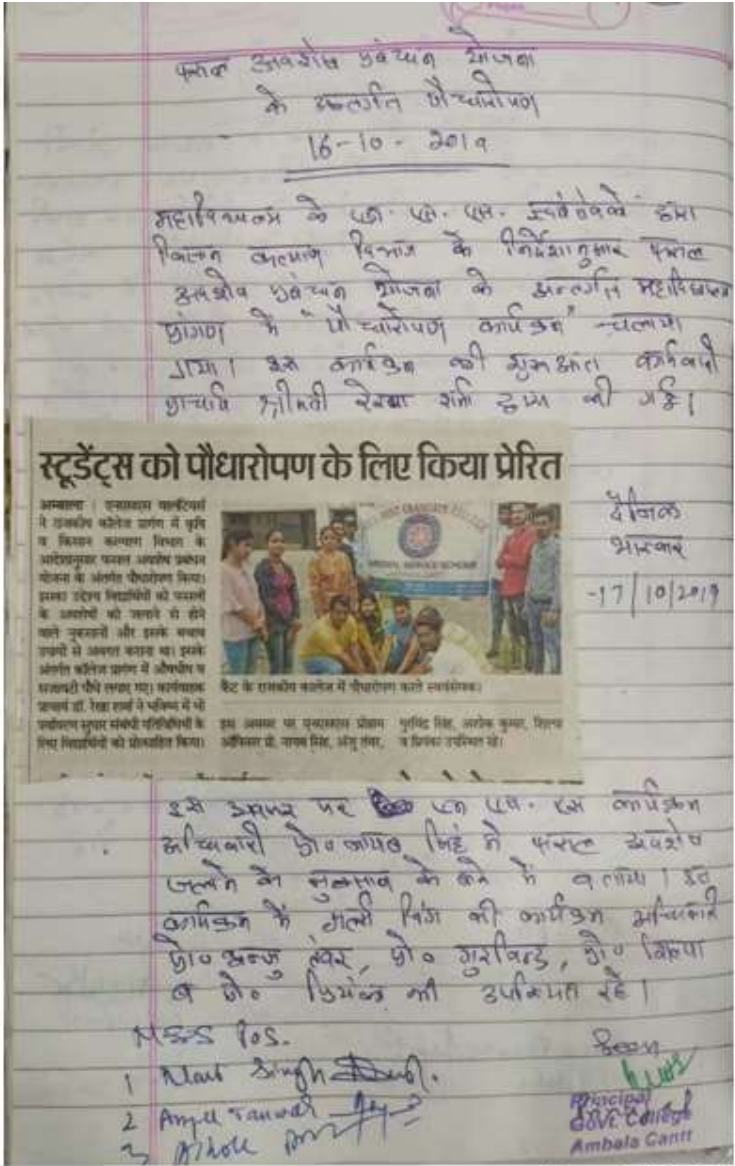 फसल अवशेष प्रबंधन योजना
के अन्तर्गत पौधारोपण
16-10-2019
महाविद्यालय के एन. एस. एस. स्वयंसेवकों द्वारा
किसान कल्याण विभाग के निर्देशानुसार फसल
अवशेष प्रबंधन योजना के अन्तर्गत महाविद्यालय
प्रांगण में "पौधारोपण कार्यक्रम" चलाया
गया। इस कार्यक्रम की शुरूआत कार्यवाहक
प्राचार्य श्रीमती रेखा शर्मा द्वारा की गई।
स्टूडेंट्स को पौधारोपण के लिए किया प्रेरित
अम्बाला | एनएसएस वालंटियर्स
ने राजकीय कॉलेज प्रांगण में कृषि
व किसान कल्याण विभाग के
आदेशानुसार फसल अवशेष प्रबंधन
योजना के अंतर्गत पौधारोपण किया।
इसका उद्देश्य विद्यार्थियों को फसलों
के अवशेषों को जलाने से होने
वाले नुकसानों और इसके बचाव
उपायों से अवगत कराना था। इसके
अंतर्गत कॉलेज प्रांगण में औषधीय व
सजावटी पौधे लगाए गए। कार्यवाहक
प्राचार्य डॉ. रेखा शर्मा ने भविष्य में भी
पर्यावरण सुधार संबंधी गतिविधियों के
लिए विद्यार्थियों को प्रोत्साहित किया।
POST GRADUATE COLLEGE
NATIONAL SERVICE SCHEME
कैंट के राजकीय कालेज में पौधारोपण करते स्वयंसेवक।
इस अवसर पर एनएसएस प्रोग्राम
ऑफिसर प्रो. नायब सिंह, अंजु तंवर,
गुरविंद्र सिंह, अशोक कुमार, शिल्पा
व प्रियंका उपस्थित रहे।
दैनिक
भास्कर
-17/10/2019
इस अवसर पर एन एस. एस कार्यक्रम
अधिकारी प्रो० नायब सिंह ने फसल अवशेष
जलाने के नुकसान के बारे में बताया। इस
कार्यक्रम में गर्ल्स विंग की कार्यक्रम अधिकारी
प्रो० अन्जु तंवर, प्रो० गुरविन्द्र, प्रो० शिल्पा
व प्रो० प्रियंका भी उपस्थित रहे।
NSS POs.
1 Naib Singh
2 Anju Tanwar
3 Ashok
Seen
Principal
Govt. College
Ambala Cantt